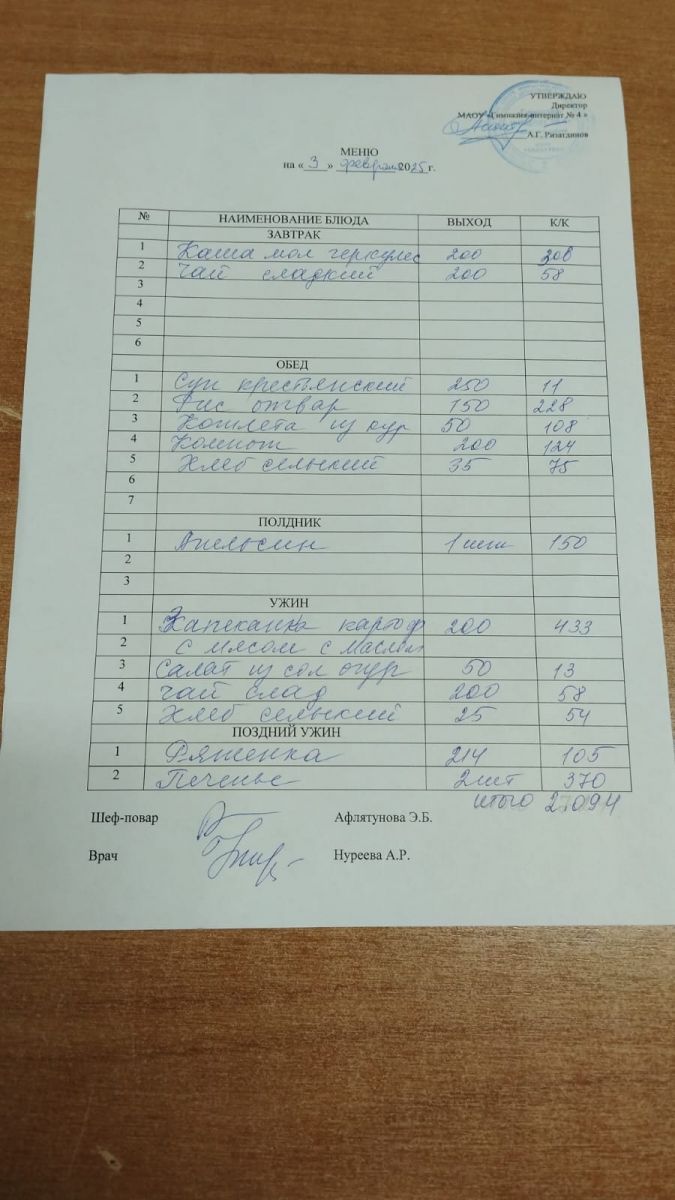 УТВЕРЖДАЮ
Директор
МАОУ «Гимназия-интернат № 4»
А.Г. Ризатдинов
МЕНЮ
на « 3 » февраля 2025 г.
№ НАИМЕНОВАНИЕ БЛЮДА ВЫХОД К/К
ЗАВТРАК
1 Каша мол геркулес 200 308
2 Чай сладкий 200 58
3
4
5
6
ОБЕД
1 Суп крестьянский 250 11
2 Рис отвар 150 228
3 Котлета из кур 50 108
4 Компот 200 124
5 Хлеб сельский 35 75
6
7
ПОЛДНИК
1 Апельсин 1 шт 150
2
3
УЖИН
1 Запеканка картоф 200 433
2 с мясом с маслом
3 Салат из сол огур 50 13
4 Чай слад 200 58
5 Хлеб сельский 25 54
ПОЗДНИЙ УЖИН
1 Ряженка 214 105
2 Печенье 2 шт 370
итого 27094
Шеф-повар Афлятунова Э.Б.
Врач Нуреева А.Р.